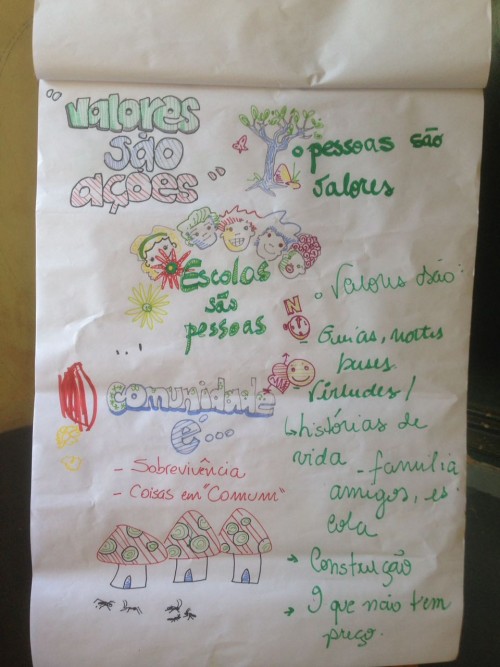 "Valores
são
ações"
o pessoas são
valores
Escolas
são
pessoas
...
o Valores são:
N
Guias, nortes
bases
Virtudes/
↳ histórias de
vida - família
amigos, es
cola
→ Construção
→ O que não tem
preço.
Comunidade
É...
- Sobrevivência
- Coisas em "Comum"